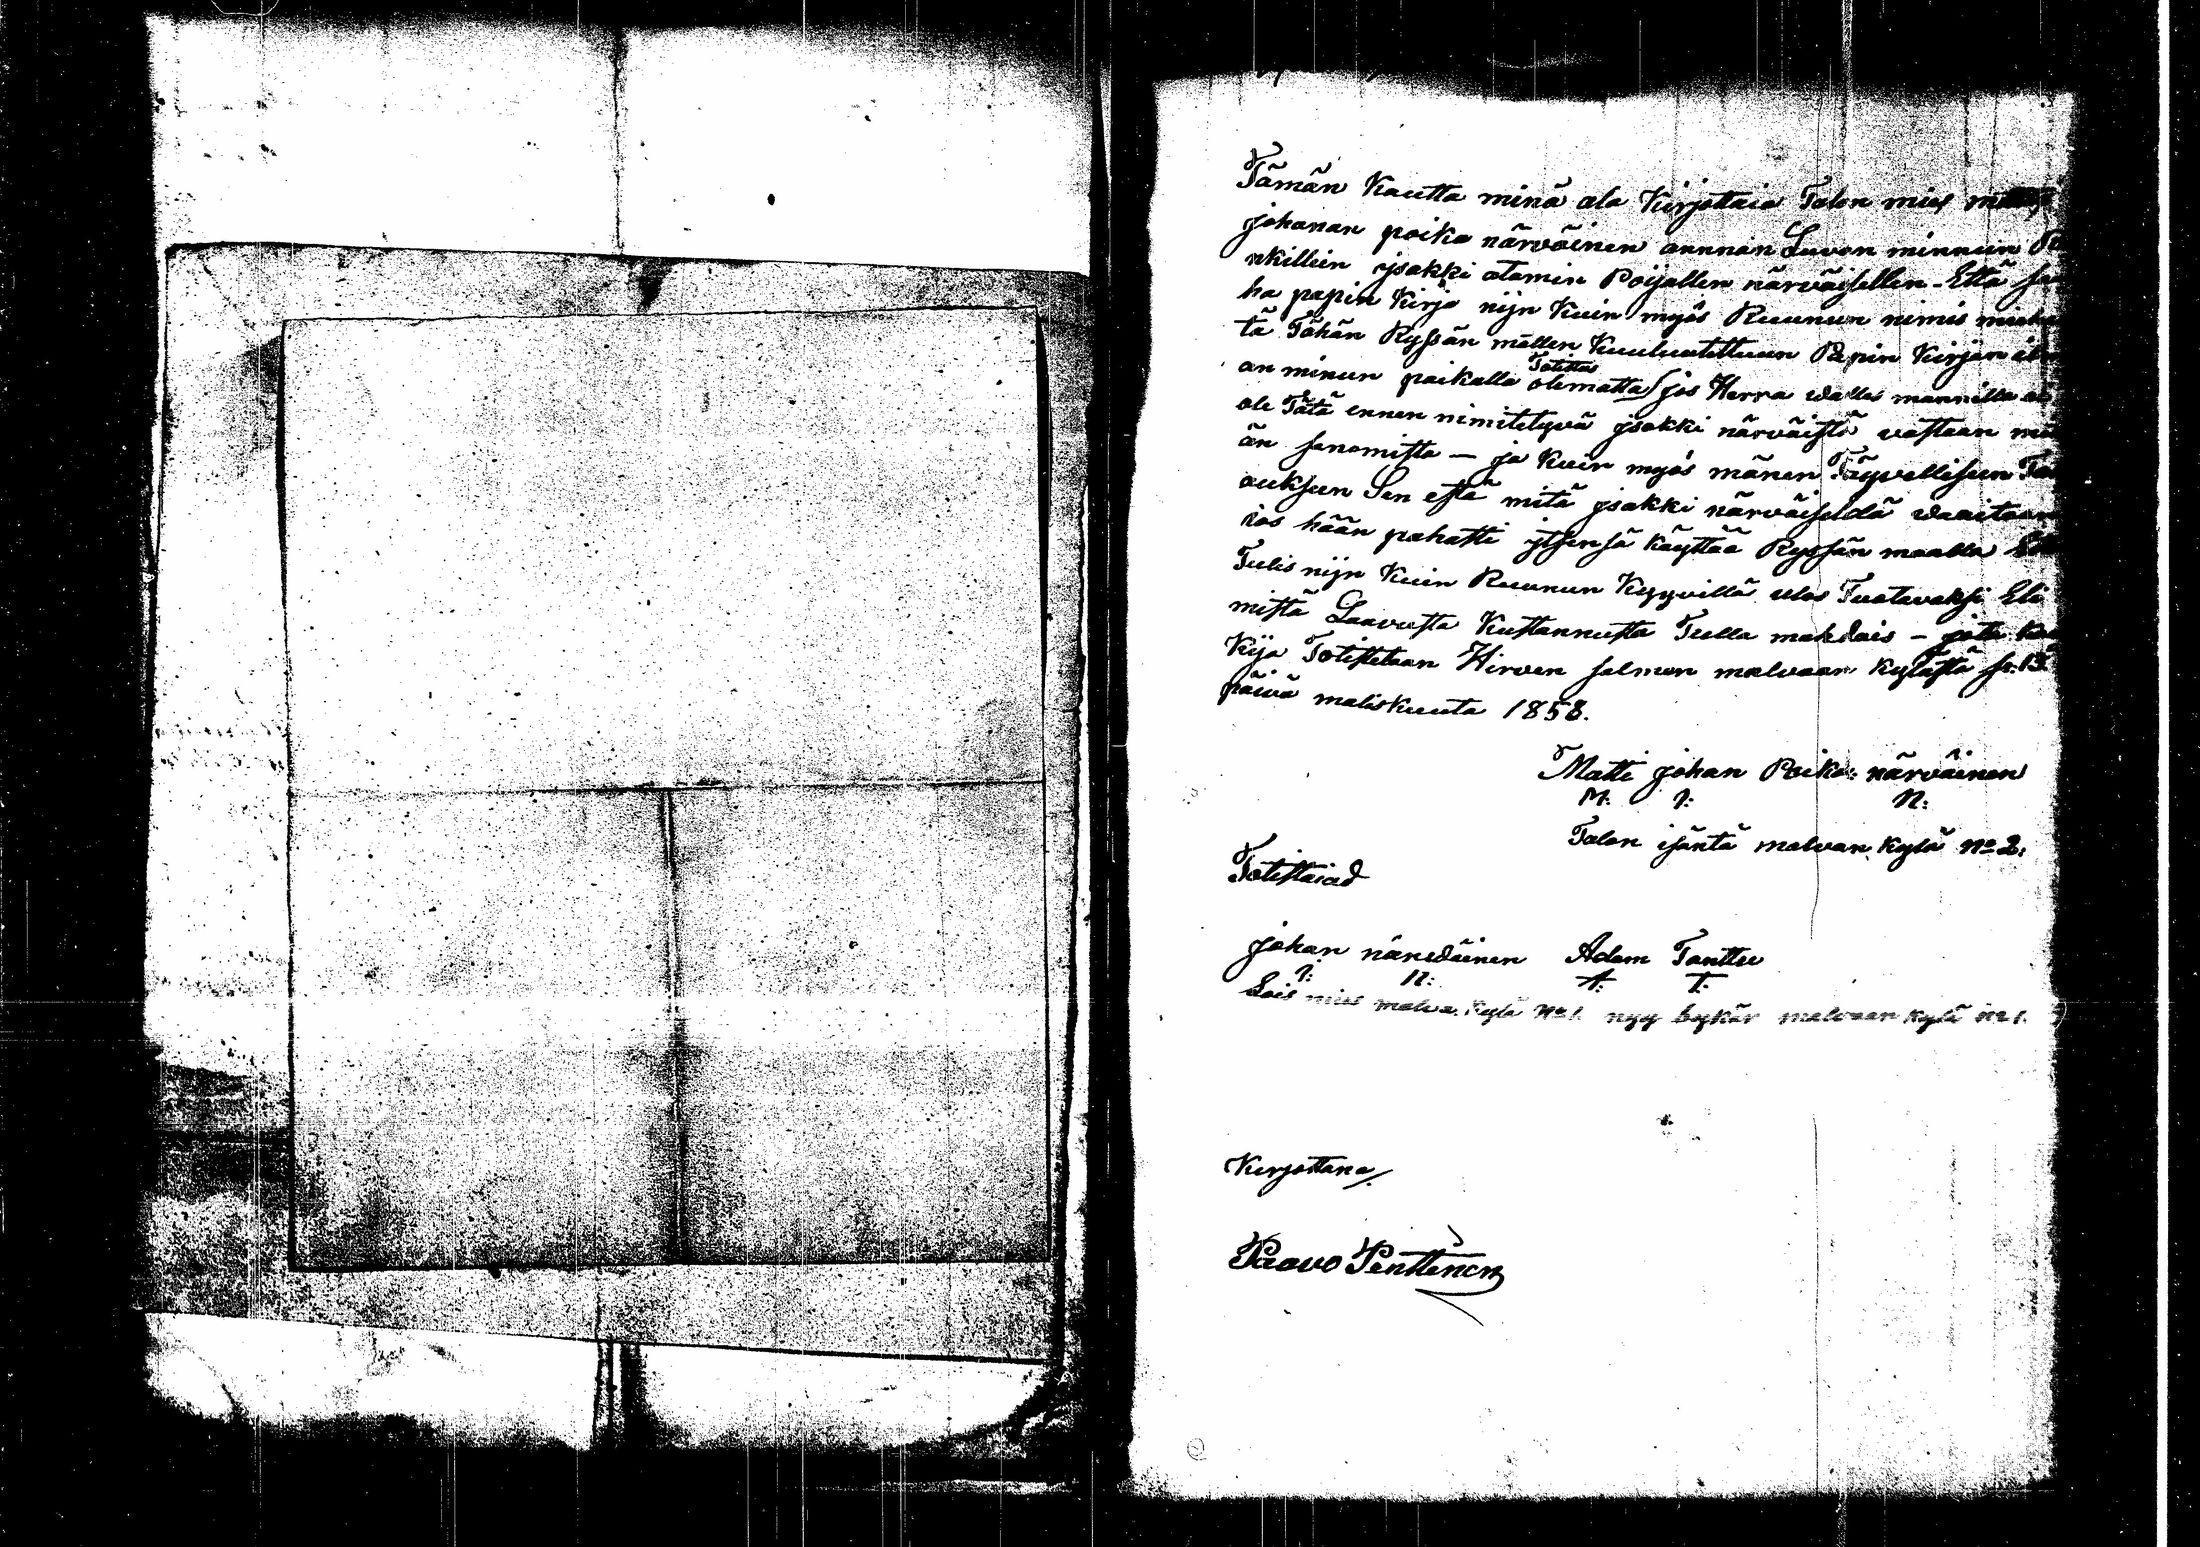 Tämän Kautta minä ala Kirjottaia Talon mies
johanan poika närwäinen annnan Luvan minnun
nkilliin jsakki atamin Poijallen närwäisellen - Että
ha papin Kirja nijn Kuin myös Ruunun nimis
tä Tähän Ryssän mällen Kuuluutettuun Papin Kirjan
Totittas
an minun paikalla olematta (jos Herra wallis mannilla ei
ole Tätä ennen nimitetyvä jsakki närwäistä vastaan
än sanomista - ja Kuin myös mänen Täyvelliseen
aukseen Sen estä mitä jsakki närwäiseldä waaitaan
ios hään pahasti jtsensä Käyttää Ryssän maalla
Tulis nijn Kuin Ruunun Kyyvillä ulos Tuotavaksi Eli
mistä Laavusta Kustannusta Tulla mahdais - jota
Kija Totistetaan Hirven salmen malvaan Kylästä sr. 13
päivä maliskuuta 1858.
Matti johan Poika närwäinen
M: J: N:
Talon isäntä malvan Kylä No 2.
Totistaiad
johan närwäinen Adam Tanttu
J: N: A: T:
Lois mies malva. Kylä No 1. nyy bykär malvaan Kylä No 1.
Kirjottana
Paavo Penttinen